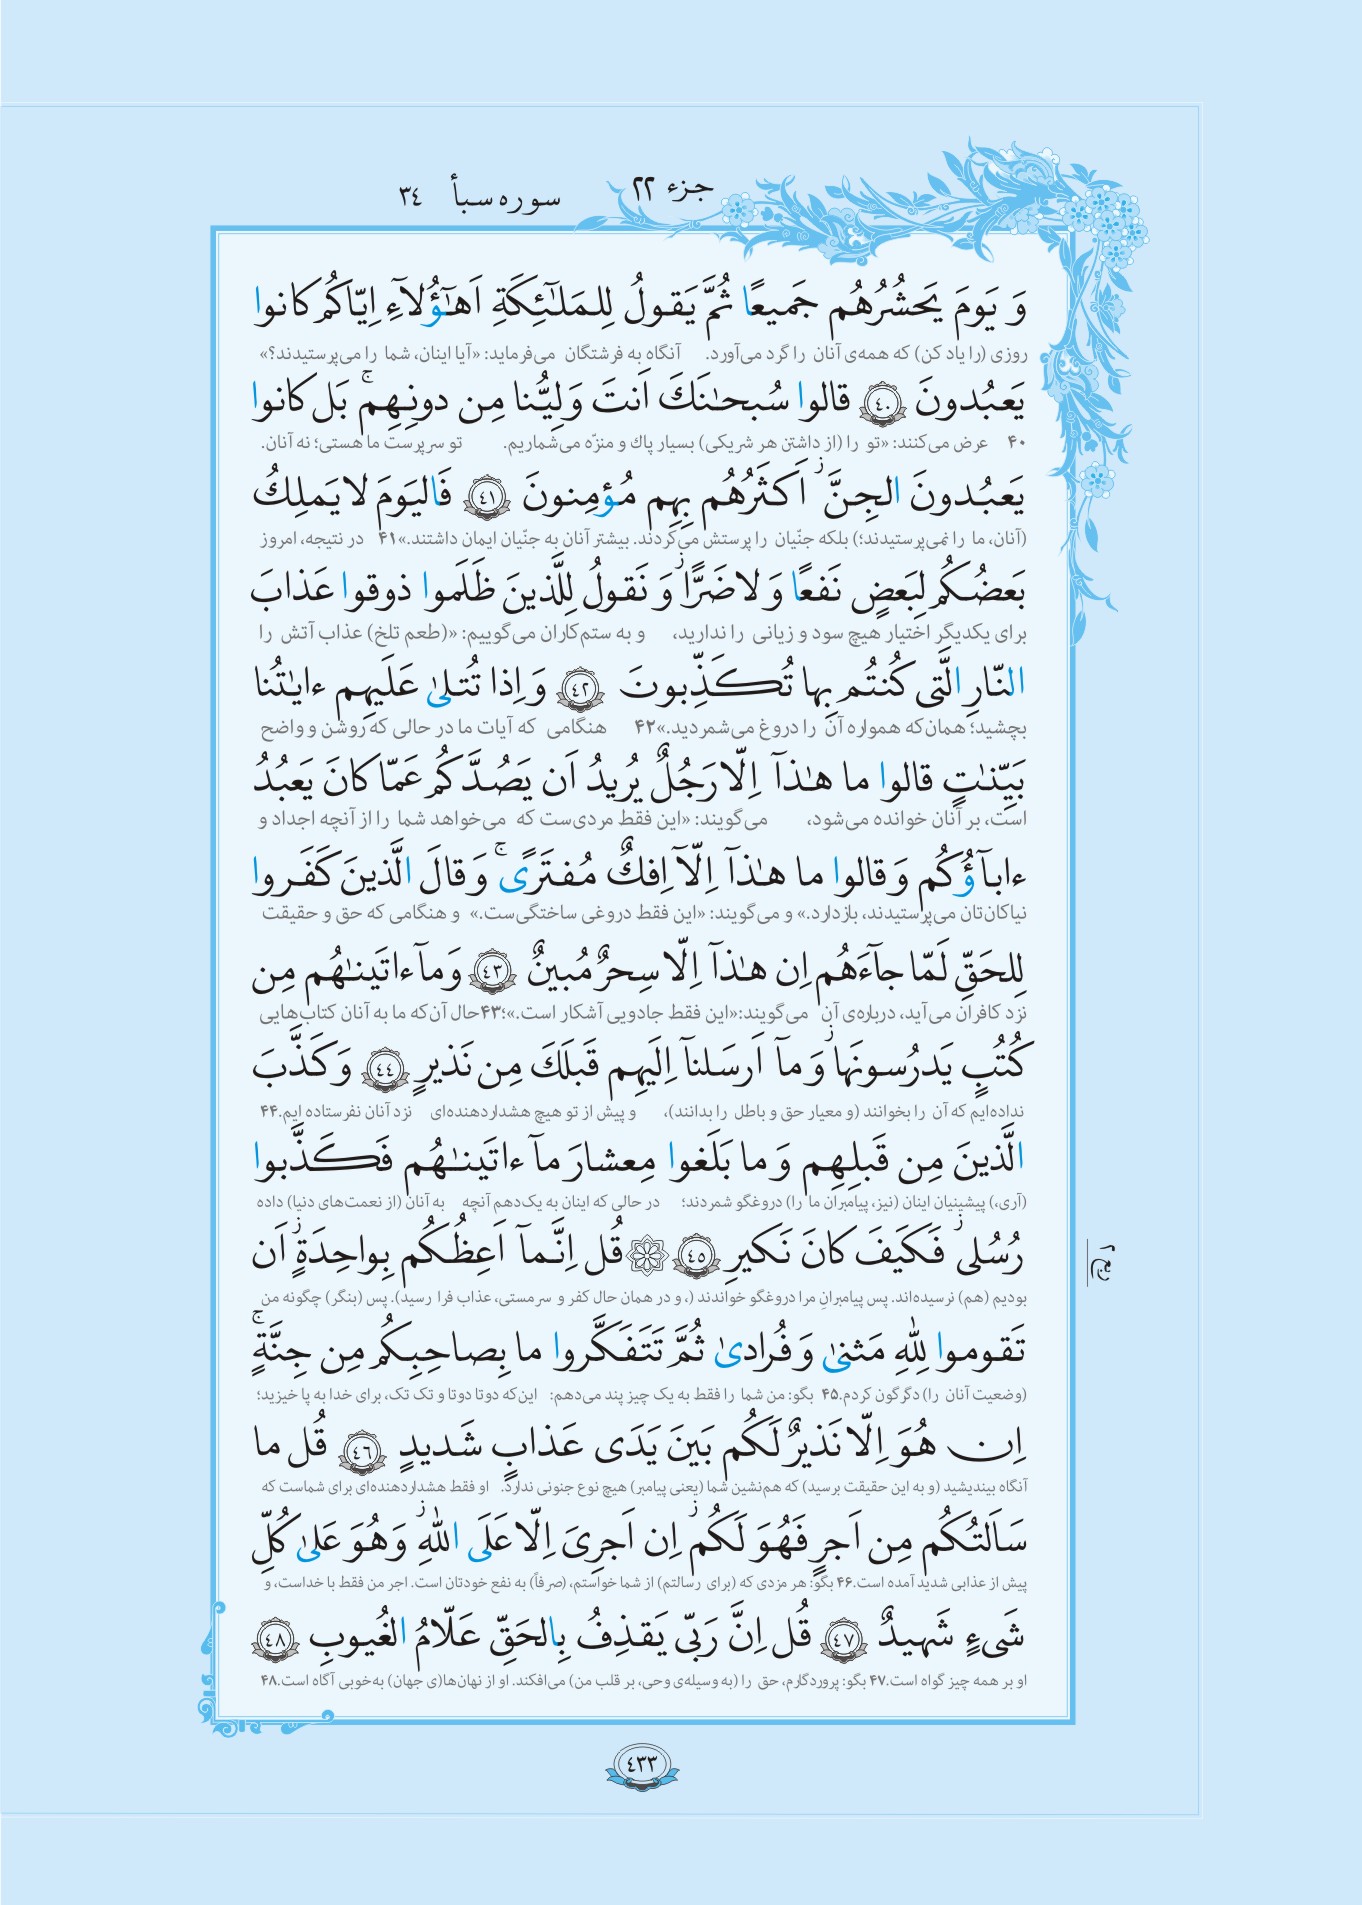 جزء ٢٢
سوره سبأ ٣٤
وَ يَومَ يَحشُرُهُم جَميعًا ثُمَّ يَقولُ لِلمَلٰٓئِكَةِ اَهٰٓؤُلآءِ اِيّاكُم كانوا
روزی (را یاد کن) که همه‌ی آنان را گرد می‌آورد. آنگاه به فرشتگان می‌فرماید: «آیا اینان، شما را می‌پرستیدند؟»
يَعبُدونَ ﴿٤٠﴾ قالوا سُبحٰنَكَ اَنتَ وَلِيُّنا مِن دونِهِم ۚ بَل كانوا
۴۰ عرض می‌کنند: «تو را (از داشتن هر شریکی) بسیار پاك و منزّه می‌شماریم. تو سرپرست ما هستی؛ نه آنان.
يَعبُدونَ الجِنَّ ۖ اَكثَرُهُم بِهِم مُؤمِنونَ ﴿٤١﴾ فَاليَومَ لا يَملِكُ
(آنان، ما را نمی‌پرستیدند؛) بلکه جنّیان را پرستش می‌کردند. بیشتر آنان به جنّیان ایمان داشتند.»۴۱ در نتیجه، امروز
بَعضُكُم لِبَعضٍ نَفعًا وَ لا ضَرًّا ز وَ نَقولُ لِلَّذينَ ظَلَموا ذوقوا عَذابَ
برای یکدیگر اختیار هیچ سود و زیانی را ندارید، و به ستم‌کاران می‌گوییم: «(طعم تلخ) عذاب آتش را
النّارِ الَّتی كُنتُم بِها تُكَذِّبونَ ﴿٤٢﴾ وَ اِذا تُتلىٰ عَلَيهِم ءايٰتُنا
بچشید؛ همان‌که همواره آن را دروغ می‌شمردید.»۴۲ هنگامی که آیات ما در حالی که روشن و واضح
بَيِّنٰتٍ قالوا ما هٰذآ اِلّا رَجُلٌ يُريدُ اَن يَصُدَّكُم عَمّا كانَ يَعبُدُ
است، بر آنان خوانده می‌شود، می‌گویند: «این فقط مردی‌ست که می‌خواهد شما را از آنچه اجداد و
ءابآؤُكُم وَ قالوا ما هٰذآ اِلّآ اِفكٌ مُفتَرًى ۚ وَ قالَ الَّذينَ كَفَروا
نیاکان‌تان می‌پرستیدند، بازدارد.» و می‌گویند: «این فقط دروغی ساختگی‌ست.» و هنگامی که حق و حقیقت
لِلحَقِّ لَمّا جآءَهُم اِن هٰذآ اِلّا سِحرٌ مُبينٌ ﴿٤٣﴾ وَ مآ ءاتَينٰهُم مِن
نزد کافران می‌آید، درباره‌ی آن می‌گویند:«این فقط جادویی آشکار است.»؛۴۳حال آن‌که ما به آنان کتاب‌هایی
كُتُبٍ يَدرُسونَها ز وَ مآ اَرسَلنآ اِلَيهِم قَبلَكَ مِن نَذيرٍ ﴿٤٤﴾ وَ كَذَّبَ
نداده‌ایم که آن را بخوانند (و معیار حق و باطل را بدانند)، و پیش از تو هیچ هشداردهنده‌ای نزد آنان نفرستاده ایم.۴۴
الَّذينَ مِن قَبلِهِم وَ ما بَلَغوا مِعشارَ مآ ءاتَينٰهُم فَكَذَّبوا
(آری،) پیشینیان اینان (نیز، پیامبران ما را) دروغگو شمردند؛ در حالی که اینان به یک‌دهم آنچه به آنان (از نعمت‌های دنیا) داده
رُسُلی ز فَكَيفَ كانَ نَكيرِ ﴿٤٥﴾ قُل اِنَّمآ اَعِظُكُم بِواحِدَةٍ ز اَن
بودیم (هم) نرسیده‌اند. پس پیامبرانِ مرا دروغگو خواندند (، و در همان حال کفر و سرمستی، عذاب فرا رسید). پس (بنگر) چگونه من
تَقوموا لِلّٰهِ مَثنىٰ وَ فُرادىٰ ثُمَّ تَتَفَكَّروا ما بِصاحِبِكُم مِن جِنَّةٍ ۚ
(وضعیت آنان را) دگرگون کردم.۴۵ بگو: من شما را فقط به یک چیز پند می‌دهم: این‌که دوتا دوتا و تک تک، برای خدا به پا خیزید؛
اِن هُوَ اِلّا نَذيرٌ لَكُم بَينَ يَدَی عَذابٍ شَديدٍ ﴿٤٦﴾ قُل ما
آنگاه بیندیشید (و به این حقیقت برسید) که هم‌نشین شما (یعنی پیامبر) هیچ نوع جنونی ندارد. او فقط هشداردهنده‌ای برای شماست که
سَاَلتُكُم مِن اَجرٍ فَهُوَ لَكُم ز اِن اَجرِیَ اِلّا عَلَى اللّٰهِ ز وَ هُوَ عَلىٰ كُلِّ
پیش از عذابی شدید آمده است.۴۶ بگو: هر مزدی که (برای رسالتم) از شما خواستم، (صرفاً) به نفع خودتان است. اجر من فقط با خداست، و
شَیءٍ شَهيدٌ ﴿٤٧﴾ قُل اِنَّ رَبّی يَقذِفُ بِالحَقِّ عَلّامُ الغُيوبِ ﴿٤٨﴾
او بر همه چیز گواه است.۴۷ بگو: پروردگارم، حق را (به وسیله‌ی وحی، بر قلب من) می‌افکند. او از نهان‌ها(ی جهان) به‌خوبی آگاه است.۴۸
٤٣٣